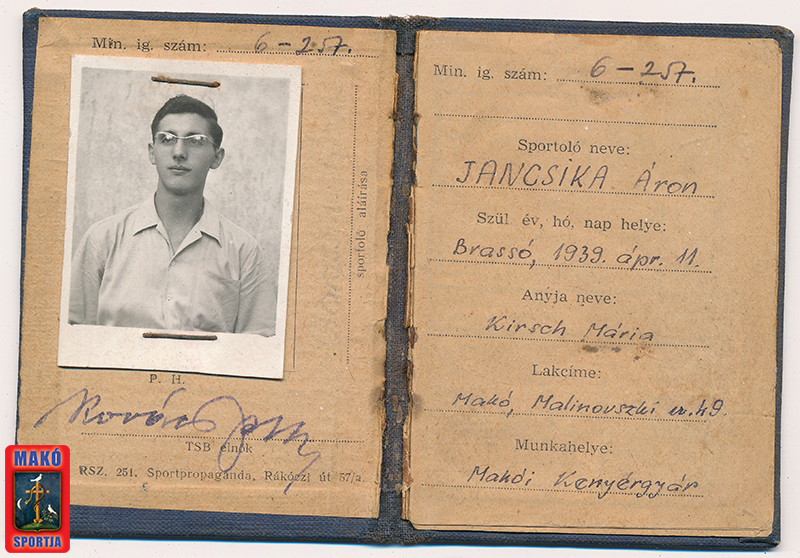 Min. ig. szám: 6-257.
sportoló aláírása
P. H.
TSB elnök
RSZ. 251. Sportpropaganda, Rákóczi út 57/a.
MAKÓ
SPORTJA
Min. ig. szám: 6-257.
Sportoló neve:
JANCSIKA Áron
Szül év, hó, nap helye:
Brassó, 1939. ápr. 11.
Anyja neve:
Kirsch Mária
Lakcíme:
Makó, Malinovszki u. 49.
Munkahelye:
Makói Kenyérgyár